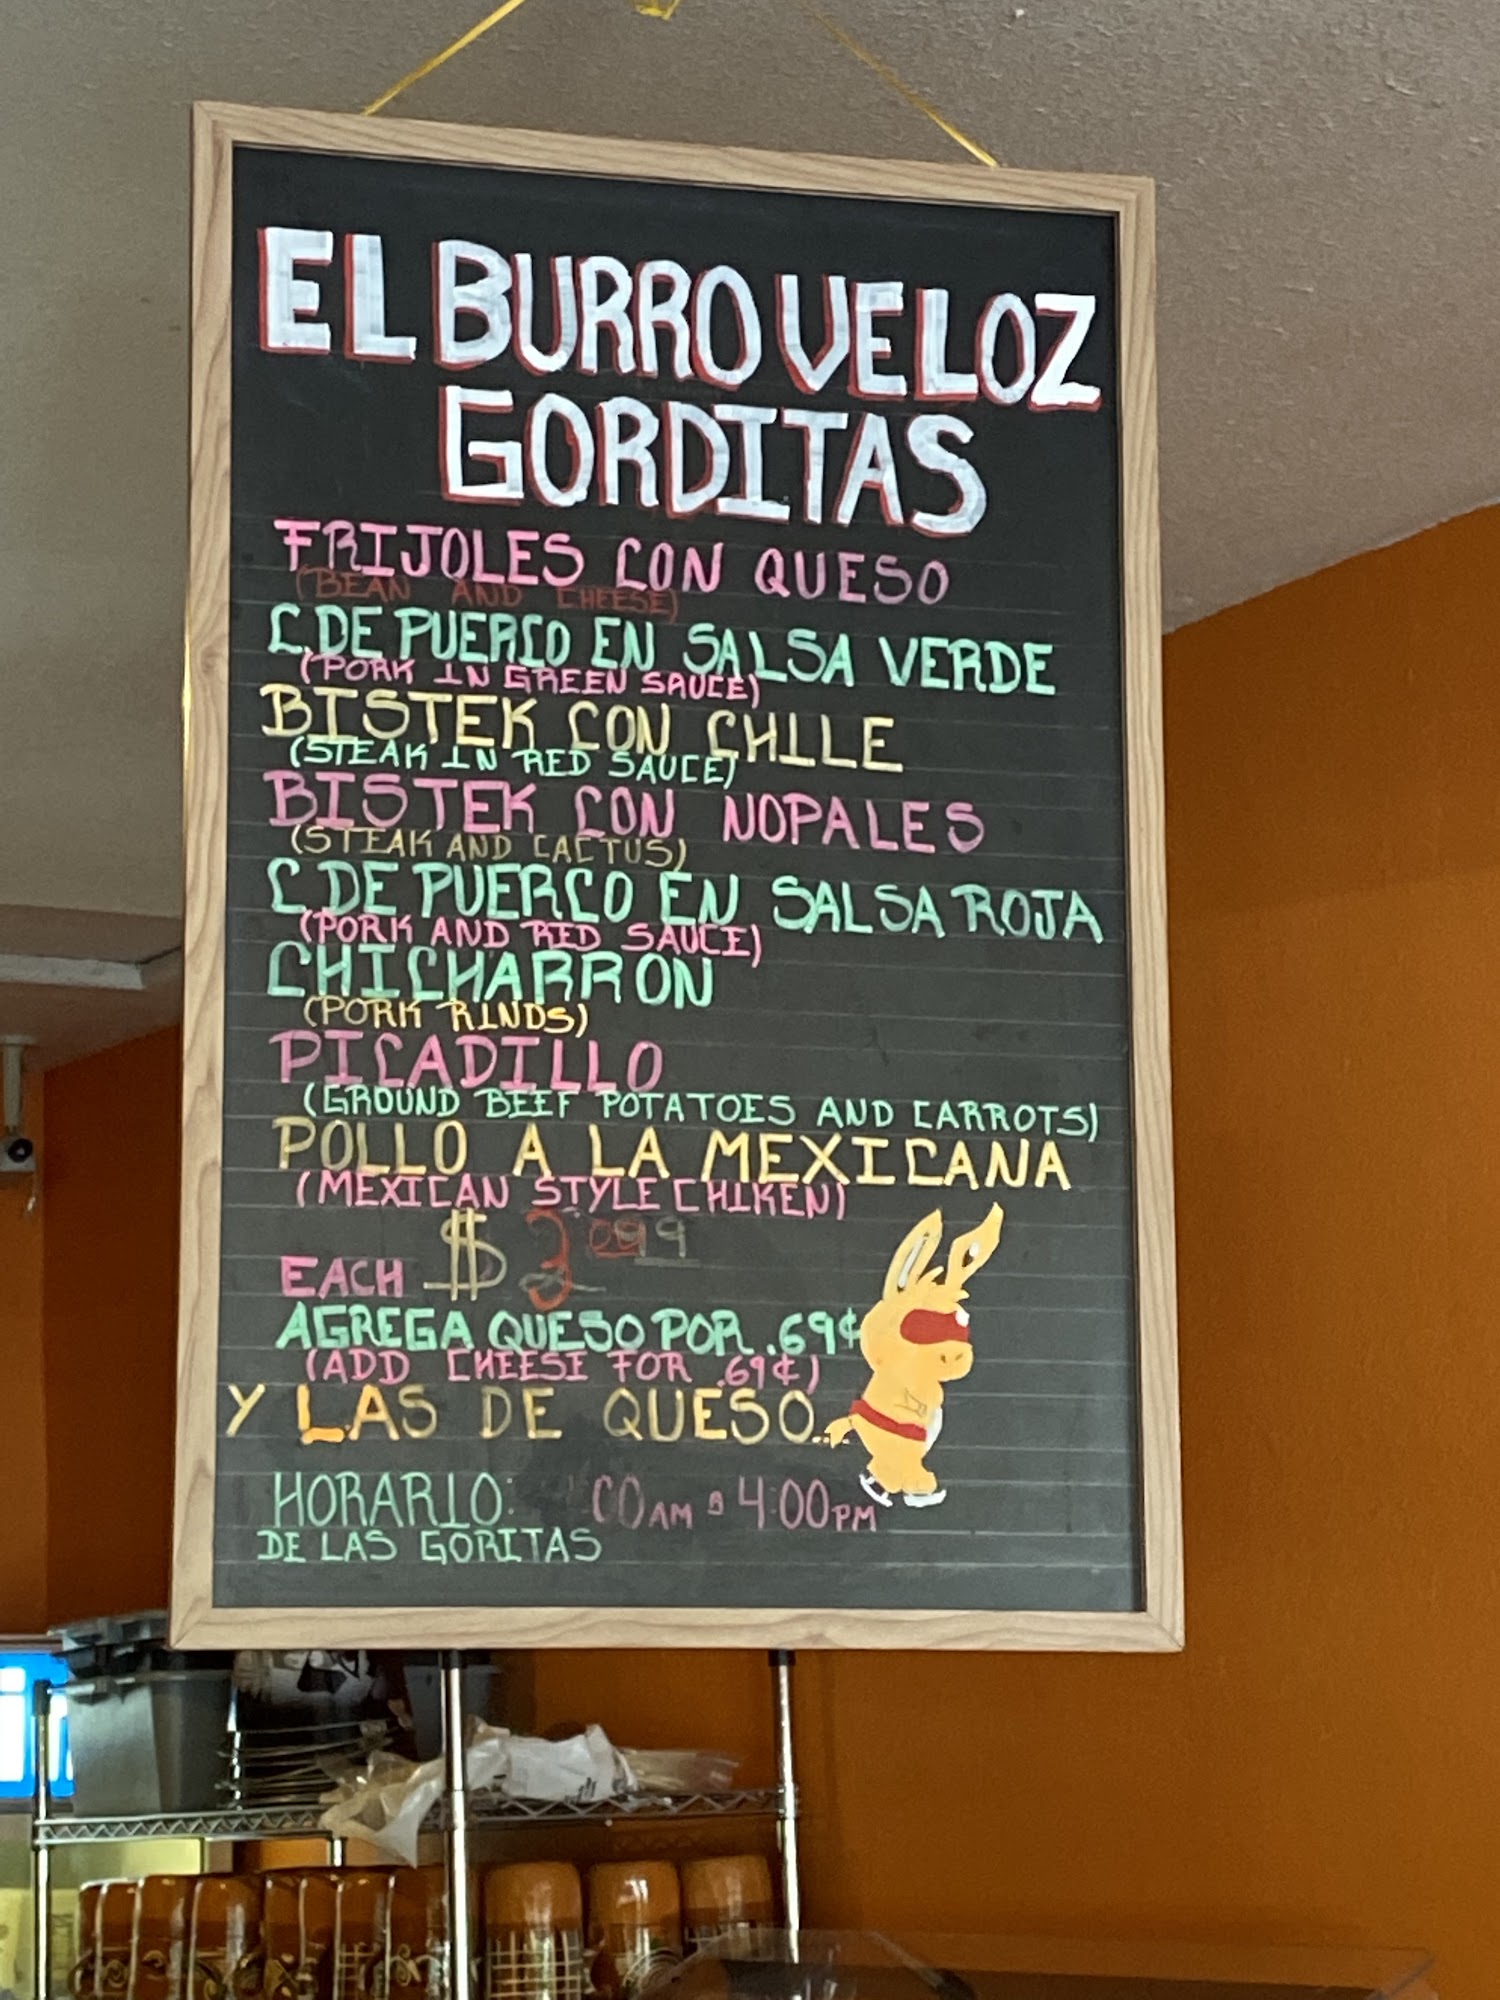 EL BURRO VELOZ
GORDITAS
FRIJOLES CON QUESO
(BEAN AND CHEESE)
C. DE PUERCO EN SALSA VERDE
(PORK IN GREEN SAUCE)
BISTEK CON CHILE
(STEAK IN RED SAUCE)
BISTEK CON NOPALES
(STEAK AND CACTUS)
C. DE PUERCO EN SALSA ROJA
(PORK AND RED SAUCE)
CHICHARRON
(PORK RINDS)
PICADILLO
(GROUND BEEF POTATOES AND CARROTS)
POLLO A LA MEXICANA
(MEXICAN STYLE CHIKEN)
EACH $
AGREGA QUESO POR .69¢
(ADD CHEESE FOR .69¢)
Y LAS DE QUESO...
HORARIO: AM a 4:00PM
DE LAS GORITAS